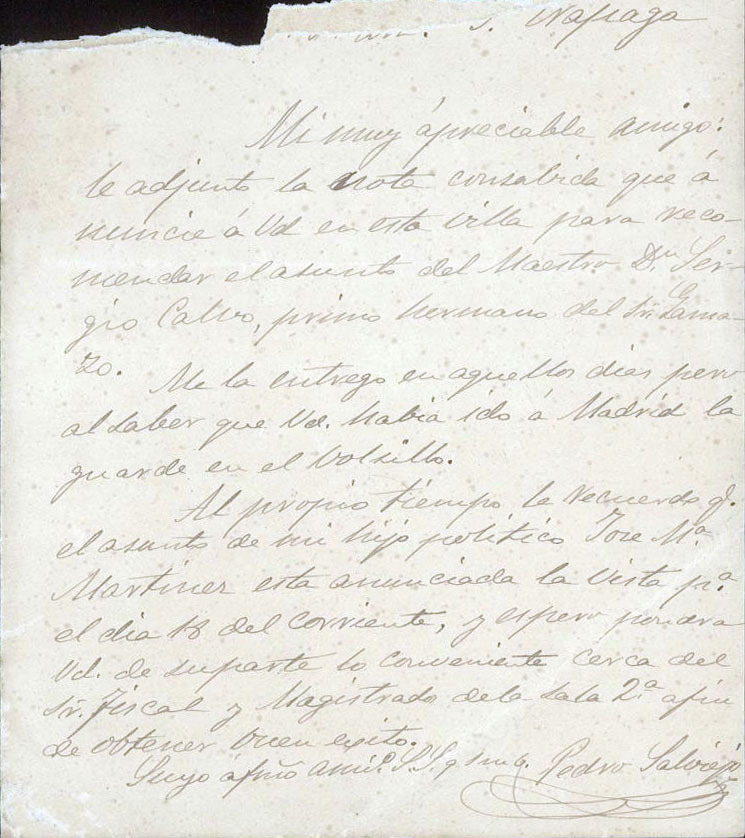 Mi muy ápreciable amigo:
le adjunto la nota consabida que á
nuncie á Vd en esta villa para reco-
mendar el asunto del Maestro Dn. Ser-
gio Calvo, primo hermano del Sr. Gama-
zo.
Me la entrego en aquellos dias pero
al saber que Vd. habia ido á Madrid la
guarde en el bolsillo.
Al propio tiempo le recuerdo q.
el asunto de mi hijo politico Jose Ma.
Martinez esta anunciada la Vista pa.
el dia 18 del corriente, y espero pondra
Vd. de su parte lo conveniente cerca del
Sr. Fiscal y Magistrado de la Sala 2.a afin
de obtener buen exito.
Suyo afmo amio. S.S. q s m b. Pedro